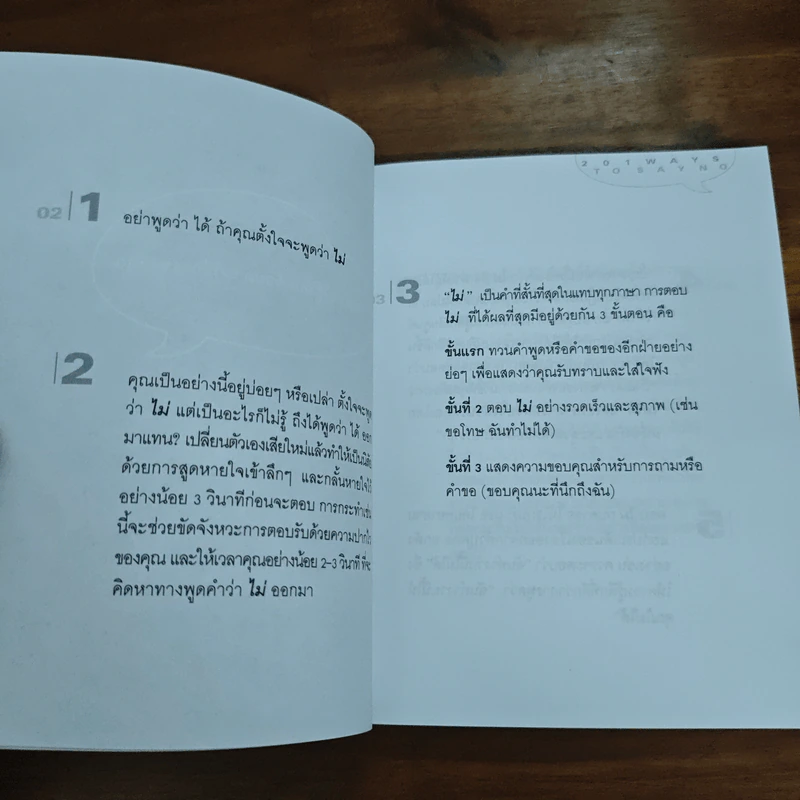 02
1
อย่าพูดว่า ได้ ถ้าคุณตั้งใจจะพูดว่า ไม่
2
คุณเป็นอย่างนี้อยู่บ่อยๆ หรือเปล่า ตั้งใจจะพูด
ว่า ไม่ แต่เป็นอะไรก็ไม่รู้ ถึงได้พูดว่า ได้ ออก
มาแทน? เปลี่ยนตัวเองเสียใหม่แล้วทำให้เป็น
ด้วยการสูดหายใจเข้าลึกๆ และกลั้นหายใจไว้
อย่างน้อย 3 วินาทีก่อนจะตอบ การกระทำเช่น
นี้จะช่วยขัดจังหวะการตอบรับด้วยความ
ของคุณ และให้เวลาคุณอย่างน้อย 2-3 วินาที ที่จะ
คิดหาทางพูดคำว่า ไม่ ออกมา
201 WAYS
TO SAY NO
03
3
"ไม่" เป็นคำที่สั้นที่สุดในแทบทุกภาษา การตอบ
ไม่ ที่ได้ผลที่สุดมีอยู่ด้วยกัน 3 ขั้นตอน คือ
ขั้นแรก ทวนคำพูดหรือคำขอของอีกฝ่ายอย่าง
ย่อๆ เพื่อแสดงว่าคุณรับทราบและใส่ใจฟัง
ขั้นที่ 2 ตอบ ไม่ อย่างรวดเร็วและสุภาพ (เช่น
ขอโทษ ฉันทำไม่ได้)
ขั้นที่ 3 แสดงความขอบคุณสำหรับการถามหรือ
คำขอ (ขอบคุณนะที่นึกถึงฉัน)